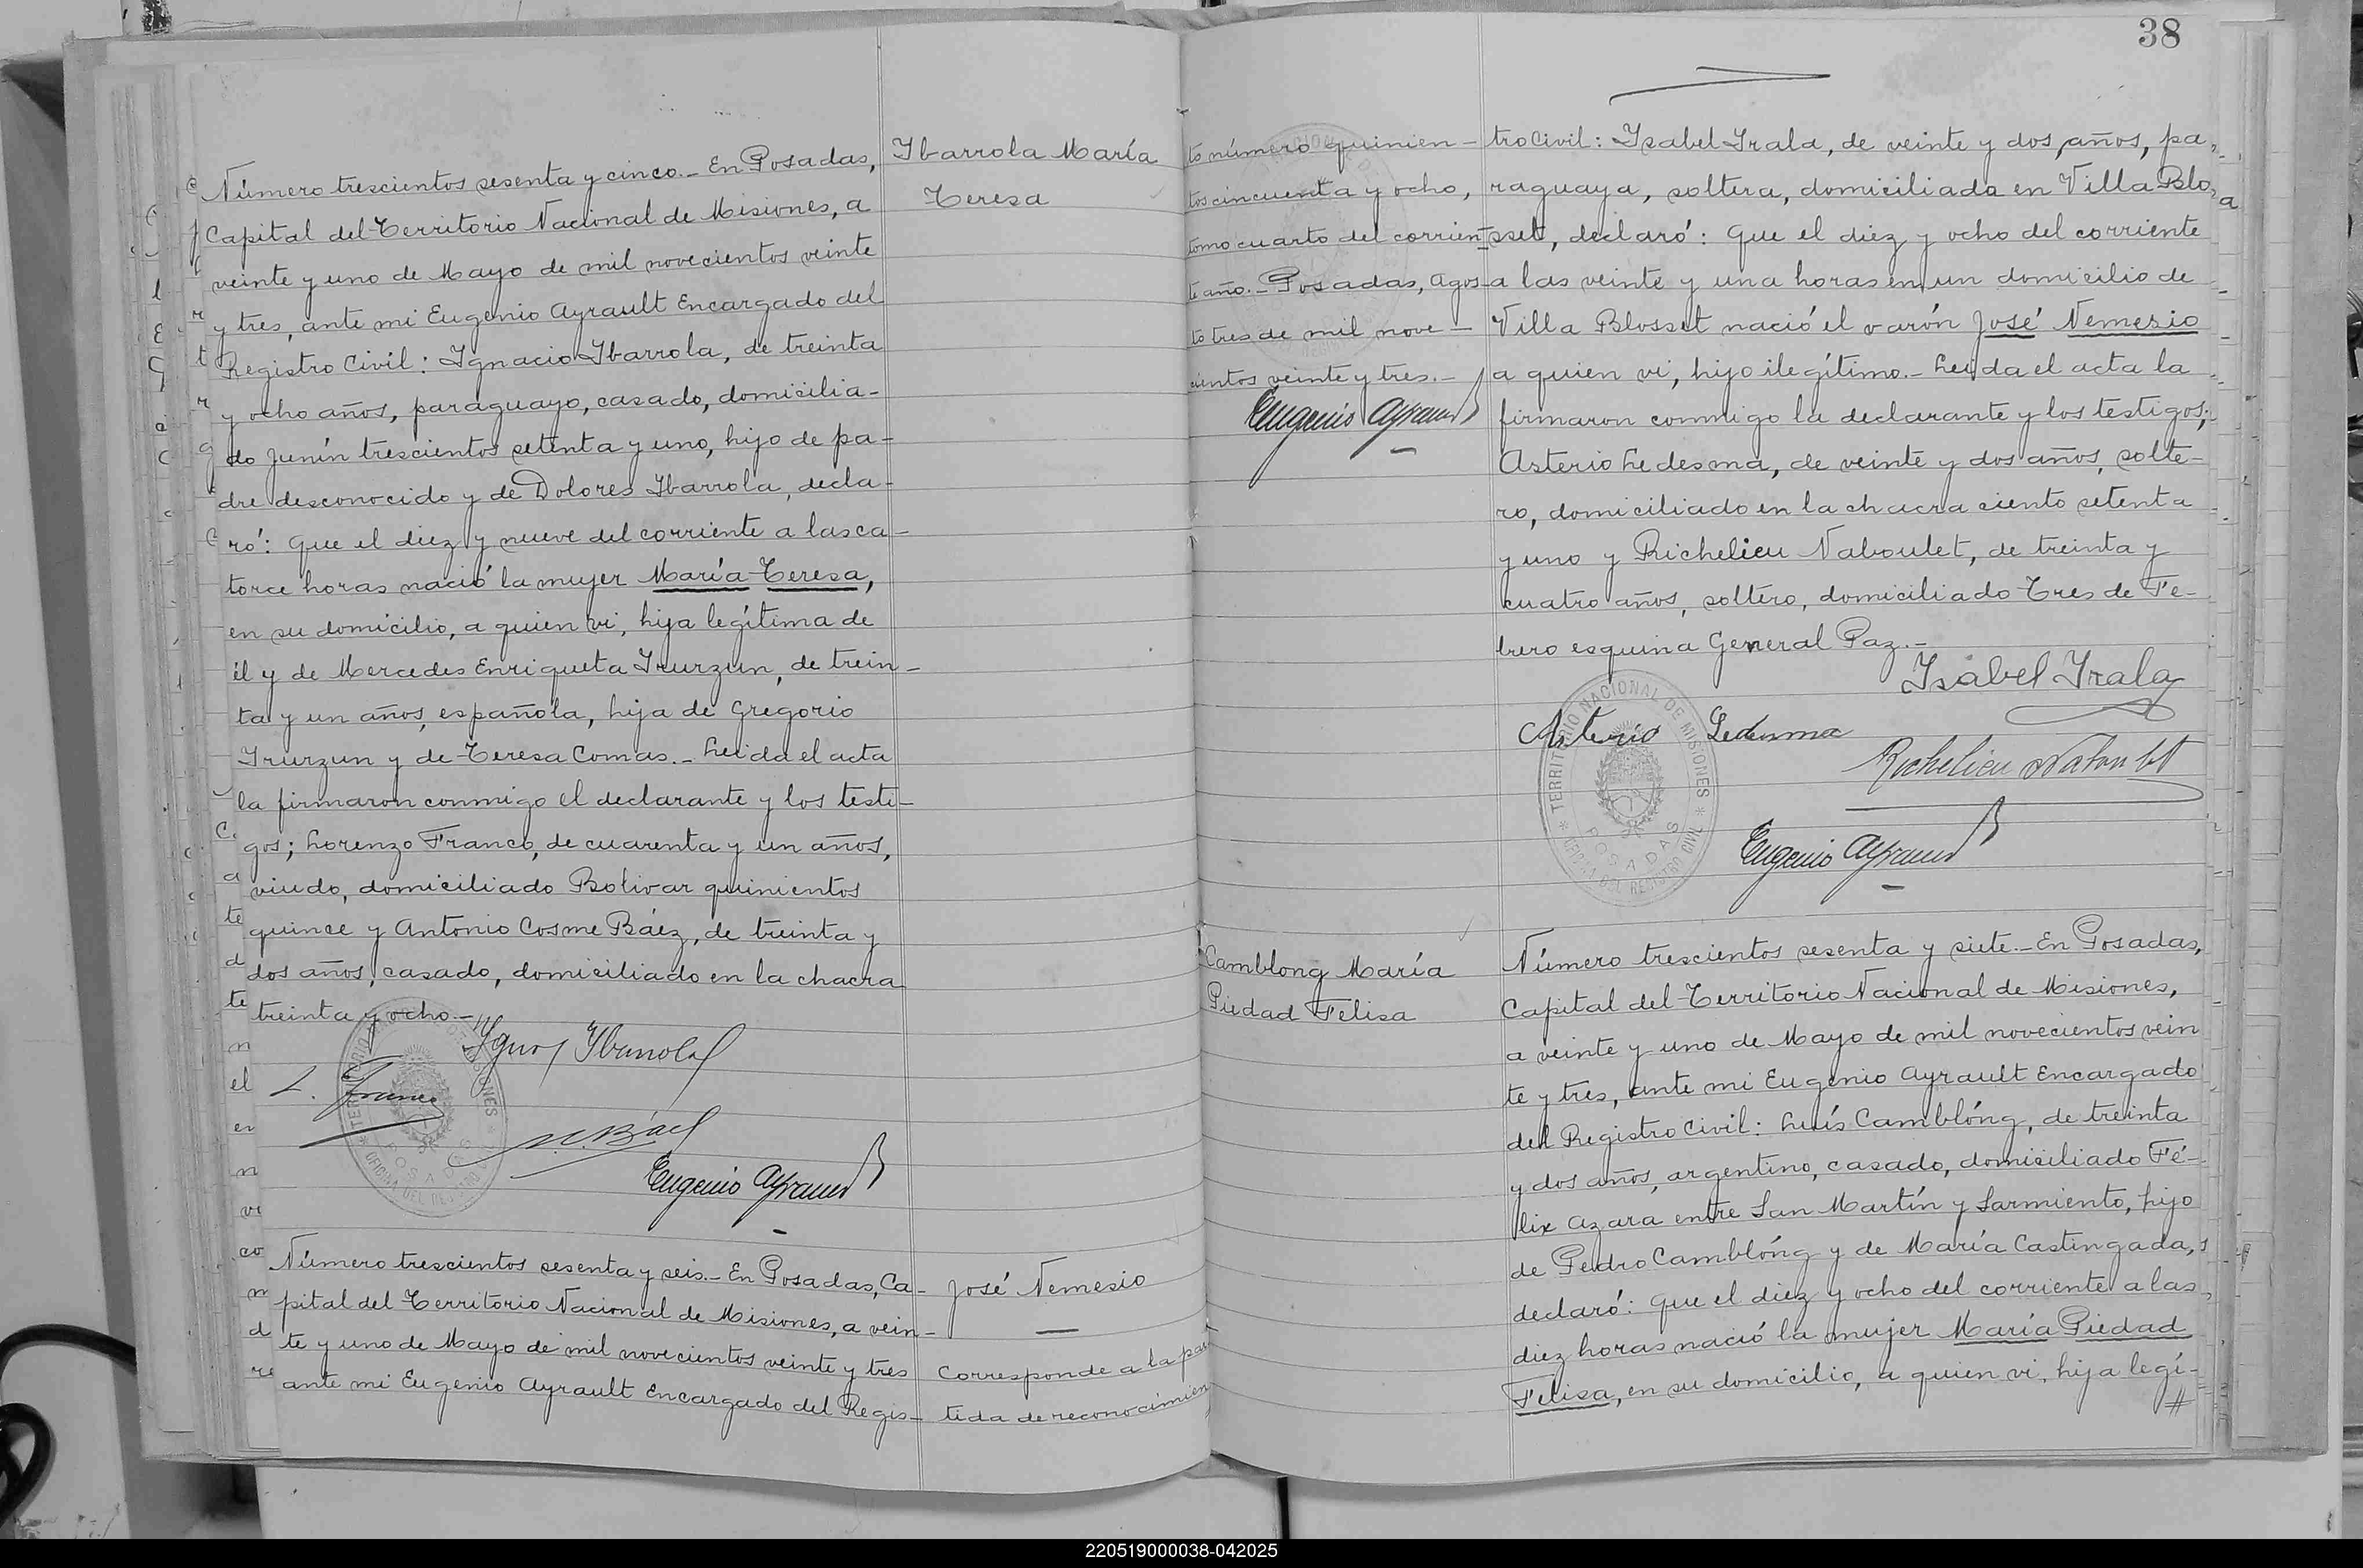 Número trescientos sesenta y cinco.- En Posadas,
Capital del Territorio Nacional de Misiones, a
veinte y uno de Mayo de mil novecientos veinte
y tres, ante mi Eugenio Ayrault Encargado del
Registro Civil: Ignacio Ibarrola, de treinta
y ocho años, paraguayo, casado, domicilia-
do Junín trescientos setenta y uno, hijo de pa-
dre desconocido y de Dolores Ibarrola, decla-
ró: Que el diez y nueve del corriente a las ca-
torce horas nació la mujer María Teresa,
en su domicilio, a quien vi, hija legítima de
él y de Mercedes Enriqueta Irurzun, de trein-
ta y un años, española, hija de Gregorio
Irurzun y de Teresa Comas.- Leida el acta
la firmaron conmigo el declarante y los testi-
gos; Lorenzo Franco, de cuarenta y un años,
viudo, domiciliado Bolivar quinientos
quince y Antonio Cosme Báez, de treinta y
dos años, casado, domiciliado en la chacra
treinta y ocho.-
Ibarrola María
Teresa
Ignac Ibarrola
L. Franco
A.C. Báez
Eugenio Ayrault
TERRITORIO NACIONAL DE MISIONES
POSADAS
OFICINA DEL REGISTRO CIVIL
Número trescientos sesenta y seis.- En Posadas, Ca-
pital del Territorio Nacional de Misiones, a vein-
te y uno de Mayo de mil novecientos veinte y tres
ante mi Eugenio Ayrault Encargado del Regis-
José Nemesio
Corresponde a la par
tida de reconocimien
38
to número quinien-
tos cincuenta y ocho,
tomo cuarto del corrien-
te año.- Posadas, Agos-
to tres de mil nove-
cientos veinte y tres.-
Eugenio Ayrault
tro Civil: Isabel Irala, de veinte y dos años, pa-
raguaya, soltera, domiciliada en Villa Blo-
sset, declaró: Que el diez y ocho del corriente
a las veinte y una horas en un domicilio de
Villa Blosset nació el varón José Nemesio
a quien vi, hijo ilegítimo.- Leida el acta la
firmaron conmigo la declarante y los testigos;
Asterio Ledesma, de veinte y dos años, solte-
ro, domiciliado en la chacra ciento setenta
y uno y Richelieu Naboulet, de treinta y
cuatro años, soltero, domiciliado Tres de Fe-
brero esquina General Paz.-
Isabel Irala
Asterio Ledesma
Richelieu Naboulet
Eugenio Ayrault
TERRITORIO NACIONAL DE MISIONES
POSADAS
OFICINA DEL REGISTRO CIVIL
Camblong María
Piedad Felisa
Número trescientos sesenta y siete.- En Posadas,
Capital del Territorio Nacional de Misiones,
a veinte y uno de Mayo de mil novecientos vein
te y tres, ante mi Eugenio Ayrault Encargado
del Registro Civil: Luís Camblóng, de treinta
y dos años, argentino, casado, domiciliado Fé-
lix Azara entre San Martín y Sarmiento, hijo
de Pedro Camblóng y de María Castingada,
declaró: Que el diez y ocho del corriente a las
diez horas nació la mujer María Piedad
Felisa, en su domicilio, a quien vi, hija legí-
220519000038-042025